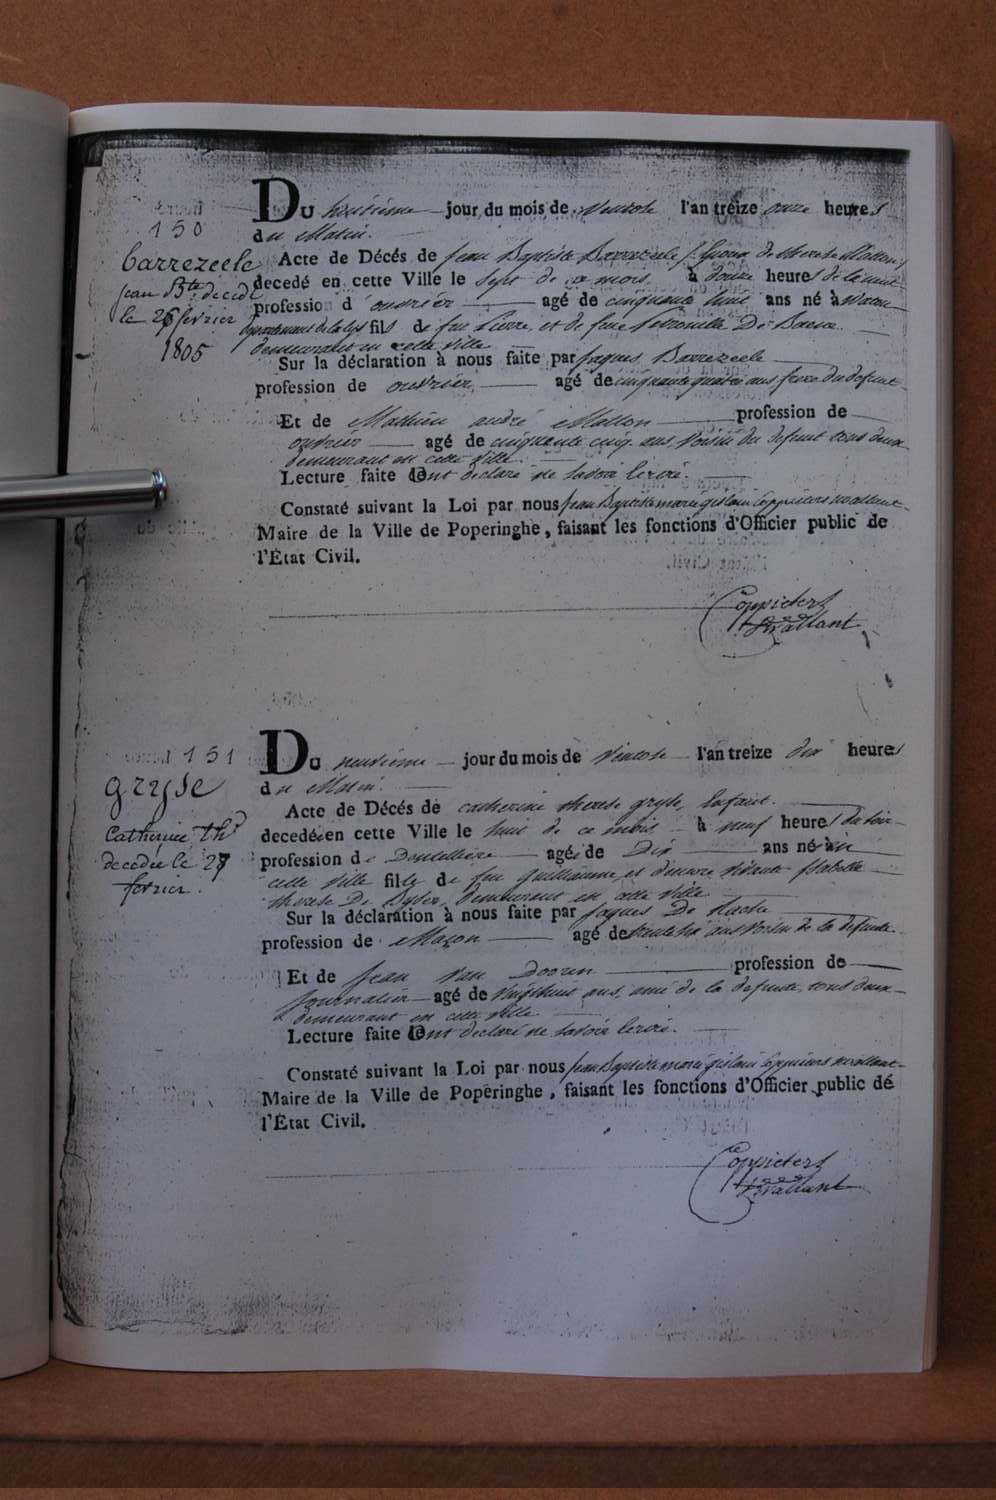 150
Barrezeele
jean Bte décéd
le 26 fevrier
1805
Du huitieme jour du mois de Ventose l'an treize onze heures
du Matin.
Acte de Décés de Jean Baptiste Barrezeele Epoux de therese Mallon
decedé en cette Ville le sept de ce mois à douze heures de la nuit
profession d'ouvrier agé de cinquante huit ans né à
departement de la Lys fils de feu Pierre, et de feue Petronille De Baene
demeurant en cette ville
Sur la déclaration à nous faite par Jaques Barrezeele
profession de ouvrier agé de cinquante quatre ans, frere du defunt
Et de Mathieu andré Mallon profession de
ouvrier agé de cinquante cinq ans Voisin du defunt tous deux
demeurant en cette ville.
Lecture faite ont declaré ne savoir écrire.
Constaté suivant la Loi par nous Jean Baptiste marie gislain Coppieters wallant
Maire de la Ville de Poperinghe, faisant les fonctions d'Officier public de
l'État Civil.
Coppieters
Wallant
151
gryse
Catherine thr
decedée le 27
fevrier.
Du neuvieme jour du mois de Ventose l'an treize dix heures
du Matin.
Acte de Décés de catherine therese gryse, Enfant.
decedée en cette Ville le huit de ce mois à neuf heures du soir
profession de Dentelliere agée de Dix ans née en
cette ville fille de feu guillaume, et d'encore vivante Isabelle
therese De demeurant en cette ville
Sur la déclaration à nous faite par Jaques De Rache
profession de Maçon agé de trente six ans Voisin de la defunte
Et de Jean Van Dooren profession de
Journalier agé de Vingthuit ans, ami de la defunte, tous deux
demeurant en cette ville
Lecture faite ont declaré ne savoir écrire.
Constaté suivant la Loi par nous Jean Baptiste marie gislain Coppieters wallant
Maire de la Ville de Poperinghe, faisant les fonctions d'Officier public de
l'État Civil.
Coppieters
Wallant